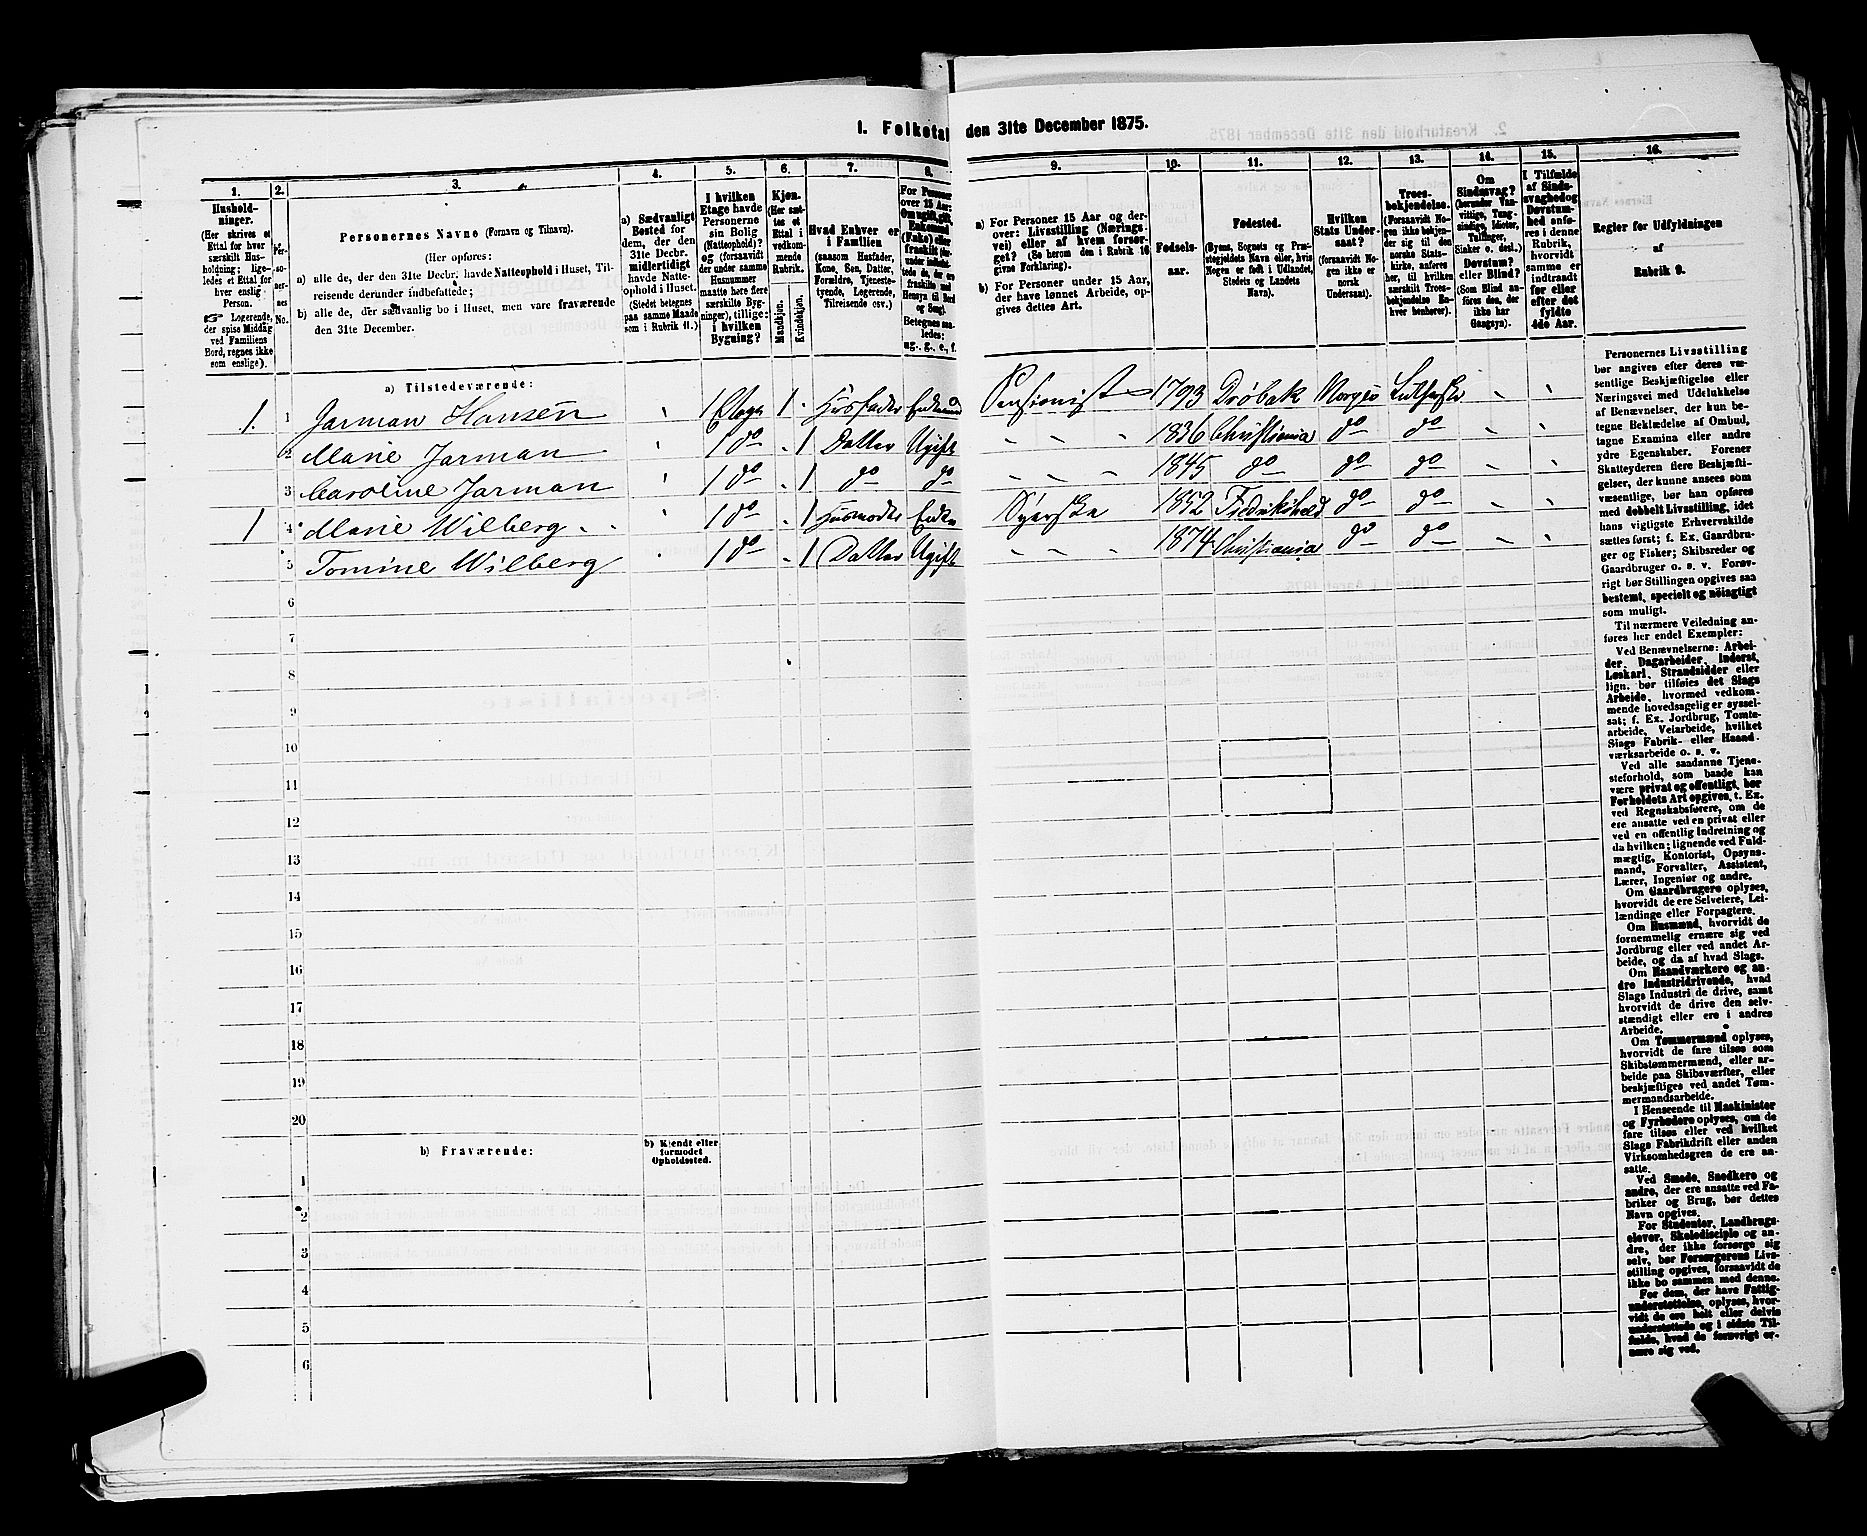 I. Folketal den 31te December 1875.
1. 2. 3. 4. 5. 6. 7. 8. 9. 10. 11. 12. 13. 14. 15. 16.
Hushold-
ninger.
(Her skrives et
Ettal for hver
særskilt Hus-
holdning; lige-
ledes et Ettal for
hver enslig
Person.
☞ Logerende,
der spise Middag
ved Familiens
Bord, regnes ikke
som enslige).
Per-
so-
ner-
nes
No.
Personernes Navne (Fornavn og Tilnavn).
(Her opføres:
a) alle de, der den 31te Decbr. havde Natteophold i Huset, Til-
reisende derunder indbefattede;
b) alle de, der sædvanlig bo i Huset, men vare fraværende
den 31te December.
a) Sædvanligt
Bosted for
dem, der den
31te Decbr.
midlertidigt
havde Natte-
ophold i Huset.
(Stedet betegnes
paa samme Maade
som i Rubrik 11.)
I hvilken
Etage havde
Personerne
sin Bolig
(Natteophold)?
og (forsaavidt
der under samme
Husnummer
maatte høre flere
særskilte Byg-
ninger), tillige:
i hvilken
Bygning?
Kjøn.
(Her sæt-
tes et
Ettal i
vedkom-
mende
Rubrik.
Mandkjøn.
Kvindekjøn.
Hvad Enhver er
i Familien
(saasom Husfader,
Kone, Søn, Datter,
Forældre, Tjeneste-
tyende, Logerende,
Tilreisende osv.)
For Personer
over 15 Aar:
Om ugift, gift,
Enkemand
(Enke) eller
fraskilt
Betegnes saa-
ledes:
ug., g., e., f.
a) For Personer 15 Aar og der-
over: Livsstilling (Nærings-
vei) eller af hvem forsør-
get? (Se herom den i Rubrik 16
givne Forklaring).
b) For Personer under 15 Aar,
der have lønnet Arbeide, op-
gives dettes Art.
Fødsels-
aar.
Fødested.
(Byens, Sognets og Præ-
stegjeldets Navn eller, hvis
Nogen er født i Udlandet,
Stedets og Landets
Navn).
Hvilken
Stats Under-
saat?
(forsaavidt No-
gen ikke er
norsk
Undersaat).
Troes-
bekjendelse.
(Forsaavidt No-
gen ikke bekjen-
der sig til den
norske Stats-
kirke, anføres
her, til hvilken
særskilt Troes-
bekjendelse En-
hver henhører).
Om
Sindssvag?
(herunder Van-
vittige, Tung-
sindige, Idioter,
Tullinger,
Sinker o. desl.)
Døvstum?
eller Blind?
(Som Blind an-
føres den, der
ikke har
Gangsyn).
I Tilfælde
af Sinds-
svaghed og
Døvstum-
hed anfø-
res i denne
Rubrik,
hvorvidt
samme er
indtraadt
før eller
efter det
fyldte
4de Aar.
Regler for Udfyldningen
af
Rubrik 9.
a) Tilstedeværende:
1. 1 Jarman Hansen 1 Etage 1 Husfader Enkemd Pensionist 1793 Drøbak Norges Lutherske
2 Marie Jarman 1 do 1 Datter Ugift 1836 Christiania do do
3 Caroline Jarman 1 do 1 do do 1845 do do do
1 4 Marie Wilberg 1 do 1 Husmoder Enke Syerske 1852 Fredrikshald do do
5 Tomine Wilberg 1 do 1 Datter Ugift 1874 Christiania do do
6
7
8
9
10
11
12
13
14
15
16
17
18
19
20
b) Fraværende:
b) Kjendt eller
formodet
Opholdssted.
1
2
3
4
5
6
Personernes Livsstilling
bør angives efter deres væ-
sentlige Beskjæftigelse eller
Næringsvei med Udelukkelse
af Benævnelser, der kun be-
tegne Beklædelse af Ombud,
tagne Examina eller andre
ydre Egenskaber. Forener
Skatteyderen flere Beskjæfti-
gelser, der kunne ansees som
væsentlige, bør han opføres
med dobbelt Livsstilling, idet
hans vigtigste Erhvervskilde
sættes først; f. Ex. Gaardbru-
ger og Fisker; Skibsreder og
Gaardbruger o. s. v. Forøv-
rigt bør Stillingen opgives saa
bestemt, specielt og nöiagtigt
som muligt.
Til nærmere Veiledning an-
føres her endel Exempler:
Ved Benævnelserne: Arbei-
der, Dagarbeider, Inderst,
Løskarl, Strandsidder eller
lign. bør tilføies det Slags
Arbeide, hvormed vedkom-
mende hovedsagelig er syssel-
sat; f. Ex. Jordbrug, Tomte-
arbeide, Veiarbeide, hvilket
Slags Fabrik- eller Haand-
værksarbeide o. s. v.
Ved alle saadanne Tjene-
steforhold, som baade kan
være privat og offentligt, bør
Forholdets Art opgives, t. Ex.
ved Regnskabsførere, om de
ere ansatte ved en privat eller
ved en offentlig Indretning og
da hvilken; lignende ved Fuld-
mægtig, Kontorist, Opsyns-
mand, Forvalter, Assistent,
Lærer, Ingeniør og andre.
Om Gaardbrugere oplyses,
hvorvidt de ere Selveiere, Lei-
lændinge eller Forpagtere.
Om Husmænd, hvorvidt de
fornemmelig ernære sig ved
Jordbrug eller ved andet Ar-
beide, og da af hvad Slags.
Om Haandværkere og an-
dre Industridrivende, hvad
Slags Industri de drive, samt
hvorvidt de drive den selv-
stændigt eller ere i andres
Arbeide.
Om Tømmermænd oplyses,
hvorvidt de fare tilsøs som
Skibstømmermænd, eller ar-
beide paa Skibsværfter, eller
beskjæftiges ved andet Tøm-
mermandsarbeide.
I Henseende til Maskinister
og Fyrbødere oplyses, om de
fare tilsøs eller ved hvilket
Slags Fabrikdrift eller anden
Virksomhedsgren de ere an-
satte.
Ved Smede, Snedkere og
andre, der ere ansatte ved Fa-
briker og Brug, bør dettes
Navn opgives.
For Studenter, Landbrugs-
elever, Skoledisciple og an-
dre, der ikke forsørge sig
selv, bør Forsørgerens Livs-
stilling opgives, forsaavidt de
ikke bo sammen med denne.
For dem, der have Fattig-
understøttelse, oplyses, hvor-
vidt de ere helt eller delvis
understøttede og i sidste Til-
fælde, hvad de forøvrigt er-
nære sig ved.